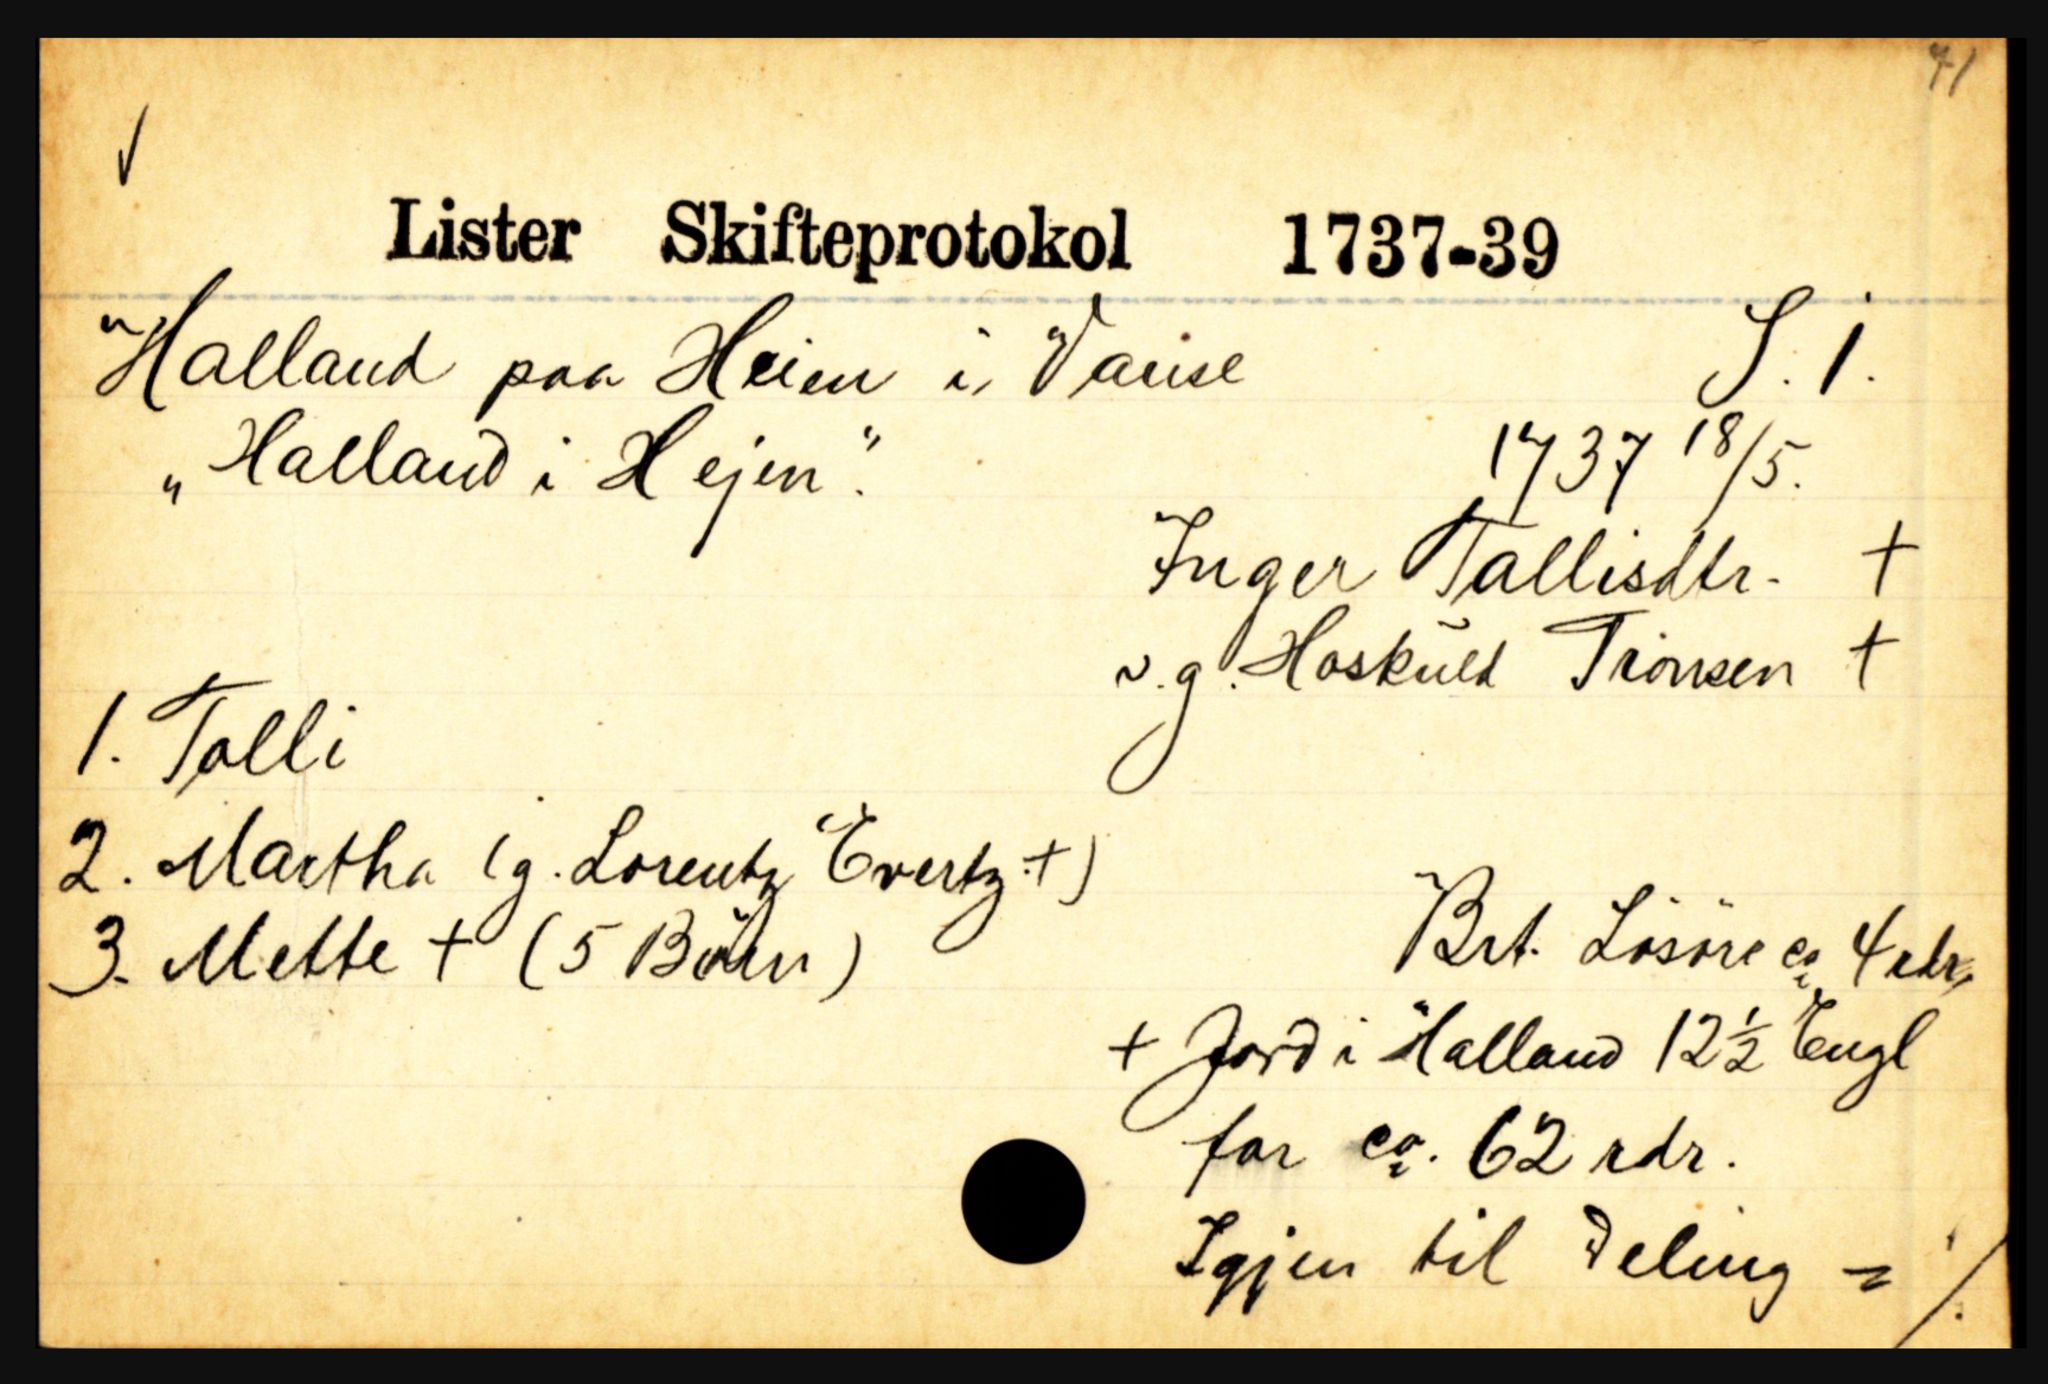 41
Lister Skifteprotokol 1737-39
Halland paa Heien i, Vanse S. 1.
„Halland i Hejen". 1737 18/5.
Inger Tallisdtr. +
v. g. Haskuld Tronsen +
1. Talli
2. Martha (g. Lorentz Evertz +)
3. Mette + (5 Börn)
Brt. Lösöre ca 4 rdr.
+ Jord i Halland 12½ Engl
for ca. 62 rdr.
Igjen til Deling = ./.